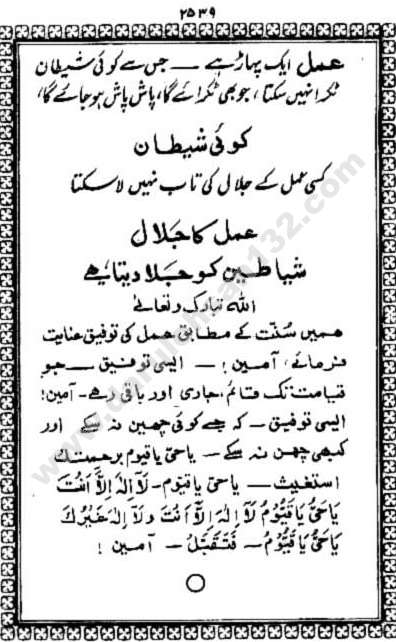 ۲۵۳۹
عمل ایک پہاڑ ہے — جس سے کوئی شیطان
ٹکرا نہیں سکتا، جو بھی ٹکرائے گا، پاش پاش ہو جائے گا،
کوئی شیطان
کسی عمل کے جلال کی تاب نہیں لا سکتا
عمل کا جلال
شیاطین کو جلا دیتا ہے
اللہ تبارک و تعالیٰ
ہمیں سُنّت کے مطابق عمل کی توفیق عنایت
فرمائے، آمین! — ایسی توفیق — جو
قیامت تک قائم، جاری اور باقی رہے۔ آمین!
ایسی توفیق — کہ جسے کوئی چھین نہ سکے اور
کبھی چھن نہ سکے — یا حیّ یا قیوم برحمتک
استغیث — یا حیّ یا قیّوم — لَآ اِلٰہَ اِلَّآ اَنْتَ
یَا حَیُّ یَا قَیُّوْمُ لَآ اِلٰہَ اِلَّآ اَنْتَ وَلَآ اِلٰہَ غَیْرُكَ
یَا حَیُّ یَا قَیُّوْمُ — فَتَقَبَّلْ — آمین !